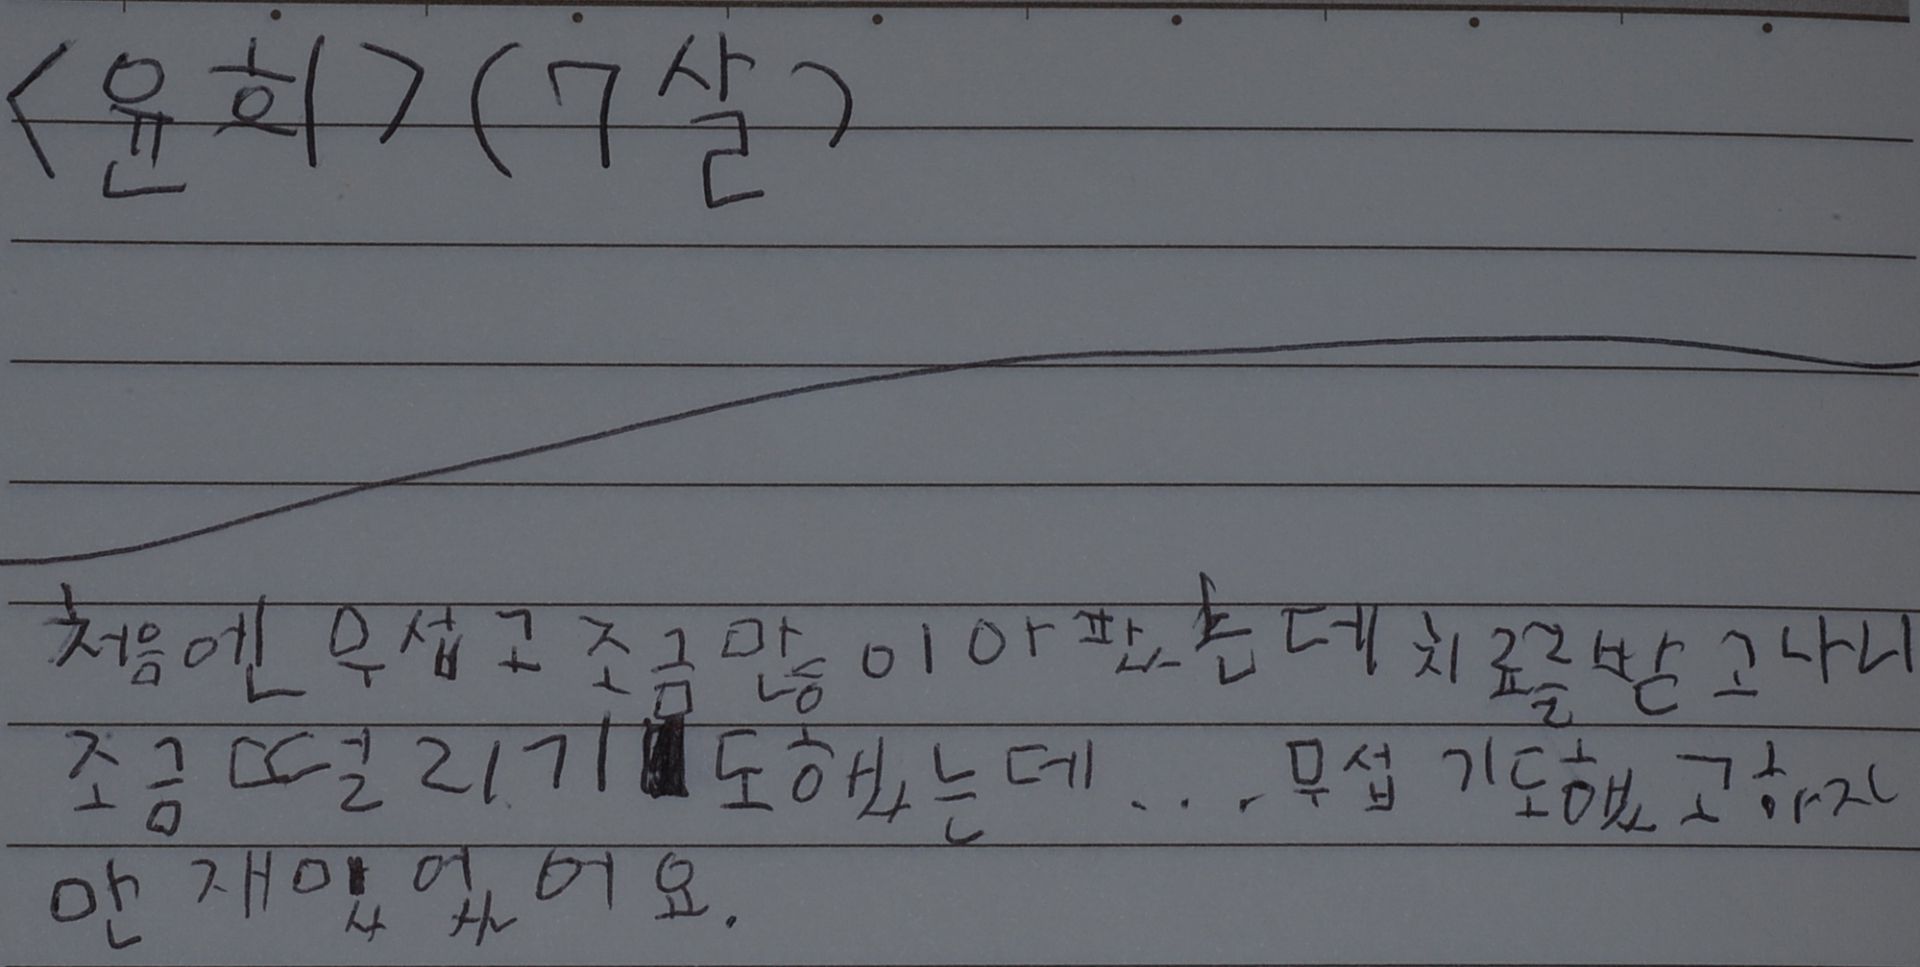 <윤희>(7살)
처음엔 무섭고 조금만이 아판는데 치료를 받고나니
조금 떨리기도했는데... 무섭기도했고 하지
만 재미있었어요.